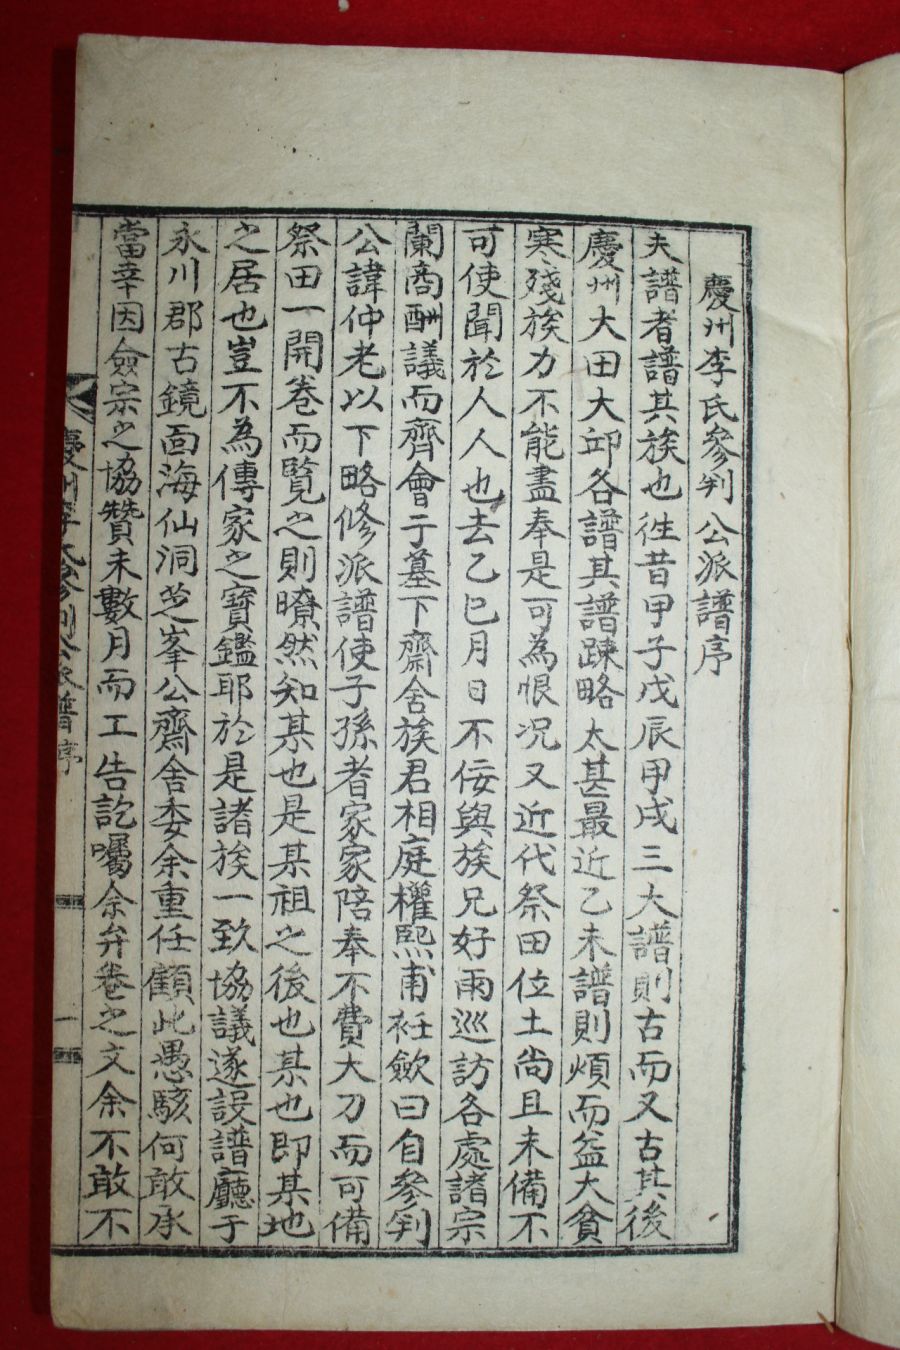 慶州李氏參判公派譜序
夫譜者譜其族也徃昔甲子戊辰甲戌三大譜則古而又古其後
慶州大田大邱各譜其譜踈略太甚最近乙未譜則煩而益大貧
寒殘族力不能盡奉是可為恨况又近代祭田位土尚且未備不
可使聞於人人也去乙巳月日不佞與族兄好雨巡訪各處諸宗
闌商酬議而齊會于墓下齋舍族君相庭權熙甫衽斂曰自參判
公諱仲老以下略修派譜使子孫者家家陪奉不費大刀而可備
祭田一開卷而覽之則暸然知某也是某祖之後也某也即某地
之居也豈不為傳家之寶鑑耶於是諸族一致協議遂設譜廳于
永川郡古鏡面海仙洞芝峯公齋舍委余重任顧此愚駭何敢承
當幸因僉宗之協贊未數月而工告訖囑余弁卷之文余不敢不
慶州李氏參判公派譜序
一